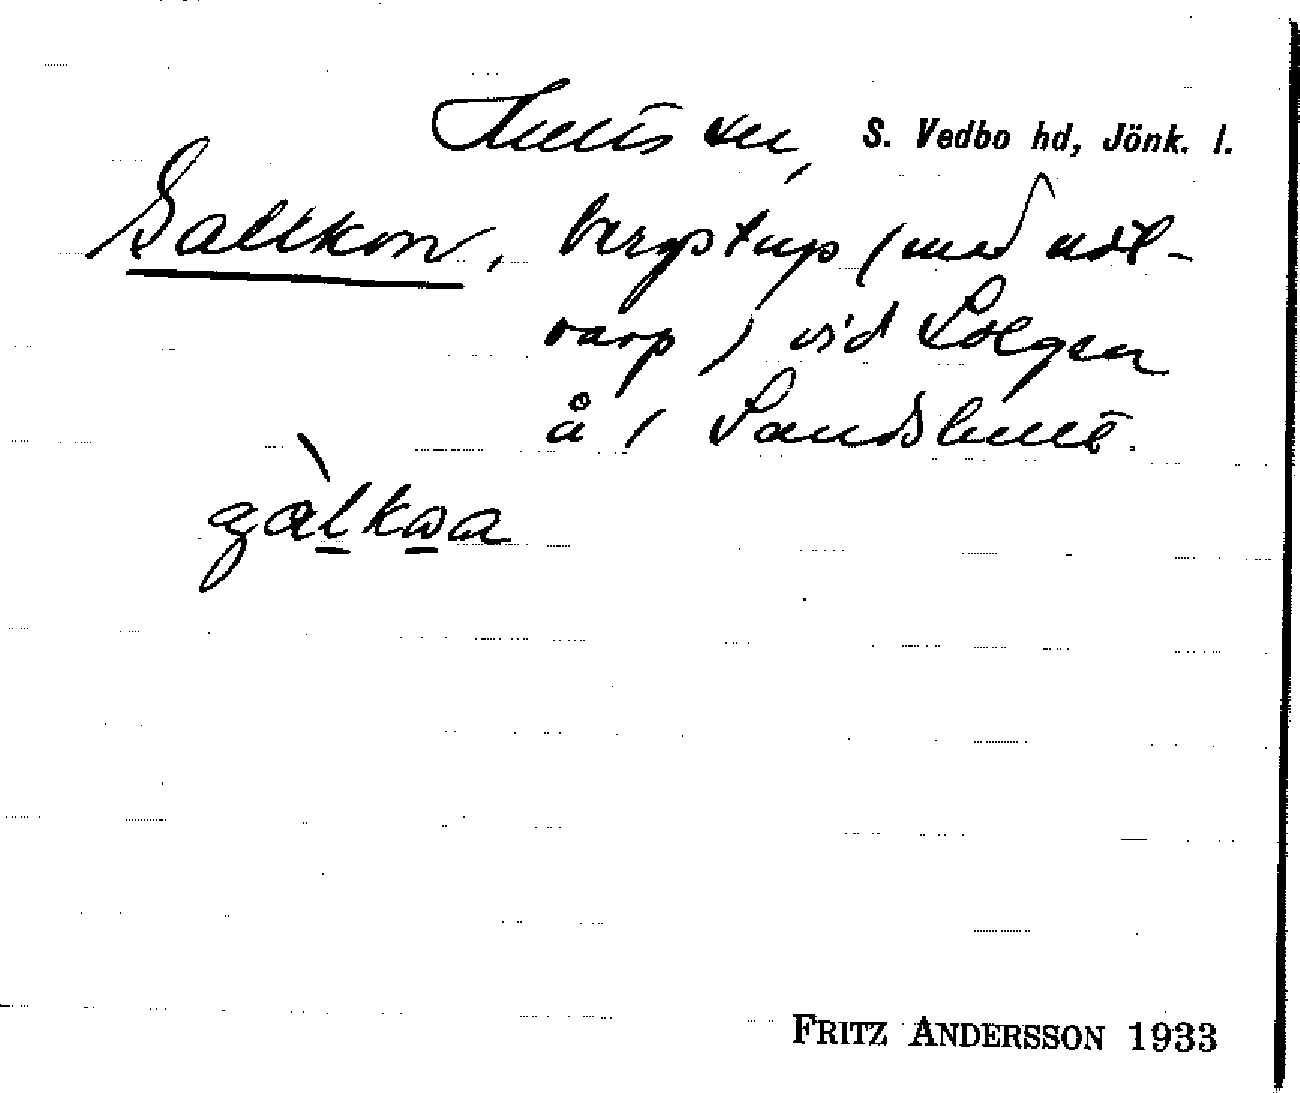 Hults sn, S. Vedbo hd, Jönk. l.
Galtkon, bergstup (med not-
varp) vid Solgen
å / Sandshult.
galkωa
FRITZ ANDERSSON 1933